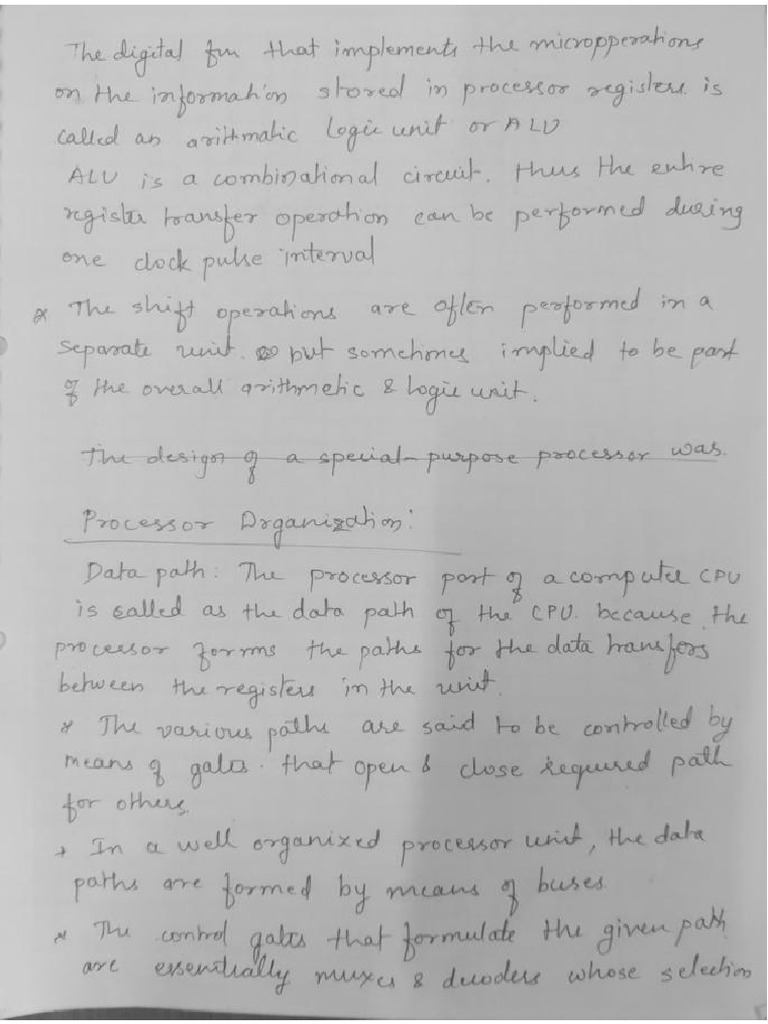 The digital fun that implements the micropperations
on the information stored in processor registers is
called an arithmatic logic unit or ALU
ALU is a combinational circuit. thus the entire
register transfer operation can be performed during
one clock pulse interval
* The shift operations are often performed in a
separate unit. but somethimes implied to be part
of the overall arithmetic & logic unit.
The design of a special-purpose processor was.
Processor Organization:
Data path: The processor part of a computer CPU
is called as the data path of the CPU. because the
processor forms the paths for the data transfers
between the registers in the unit.
* The various paths are said to be controlled by
means of gates. that open & close required path
for others.
* In a well organized processor unit, the data
paths are formed by means of buses.
* The control gates that formulate the given path
are essentially muxes & decoders whose selection